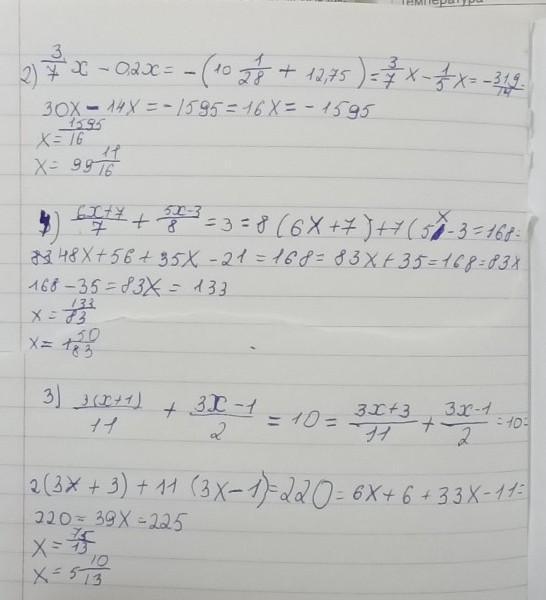 температура
2) 3/7 x - 0,2x = - (10 1/28 + 12,75) = 3/7 x - 1/5 x = - 319/14
30x - 14x = -1595 = 16x = - 1595
x = 1595/16
x = 99 11/16
4) 6x+7/7 + 5x-3/8 = 3 = 8 (6x+7) + 7 (5x - 3 = 168 =
48x + 56 + 35x - 21 = 168 = 83x + 35 = 168 = 83x
168 - 35 = 83x = 133
x = 133/83
x = 1 50/83
3) 3(x+1)/11 + 3x-1/2 = 10 = 3x+3/11 + 3x-1/2 = 10 =
2(3x + 3) + 11 (3x - 1) = 220 = 6x + 6 + 33x - 11 =
220 = 39x = 225
x = 75/13
x = 5 10/13